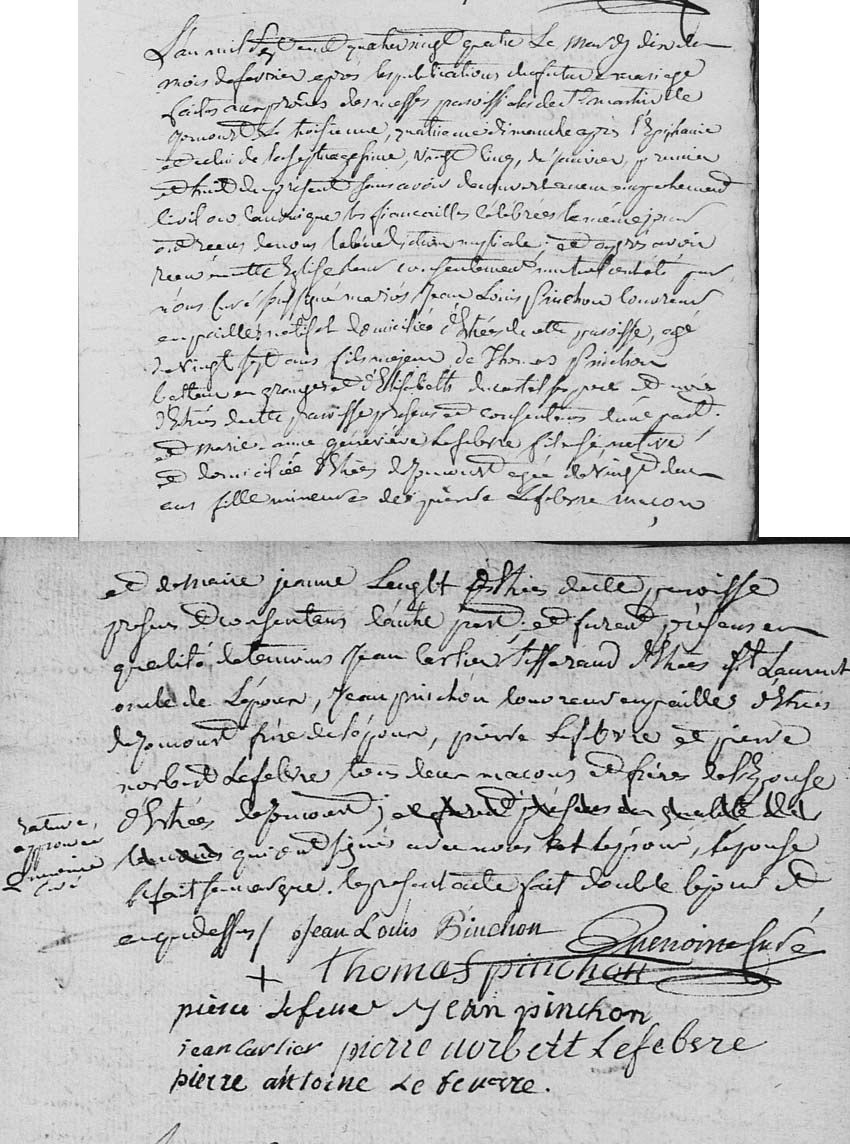 L'an mil sept cent quatre vingt quatre Le mardy dix du
mois de fevrier après les publications du futur mariage
faites aux prônes des messes paroissiales de St martin de
Zomourt le troisieme, quatrieme dimanche après l'Epiphanie
et celui de la septuagesime, vingt cinq, de janvier, premier
et huit du présent sans avoir decouvert aucun empechement
civil ou canonique les fiançailles célébrées le même jour
ont recus de nous la bénédiction nuptiale; et après avoir
recu en cette Eglise leur consentement mutuel ont été par
nous Curé soussigné mariés Jean Louis Pinchon Couvreur
en paille natif et domicilié d'Etrées de cette paroisse, agé
de vingt sept ans fils majeur de Thomas Pinchon
batteur en grange et d'Elisabeth ducastel ses pere et mere
d'Etrés de cette paroisse presens et consentans d'une part.
et marie-anne géneviève Lefebvre fileuse native
et domiciliée d'Etrées dezomourt agée de vingt deux
ans fille mineure de pierre Lefebvre maçon
et de marie jeanne Lenglet d'Etrées de cette paroisse
presens et consentans d'autre part. et furent présens en
qualité de temoins Jean Cartier tisserand d'Etrées St Laurent
oncle de L'époux, Jean pinchon couvreur en paille d'Etrées
dezomourt frère de l'époux, pierre Lefebvre et pierre
norbert Lefebvre tous deux macons et frères de l'Epouse
d'Etrées dezomourt; et furent présens en qualité de
temoins qui ont signés avec nous et l'époux, l'épouse
a fait sa marque. le present acte fait double le jour et
an que dessus /. Jean Louis Pinchon
rature
approuvée
curé
curé
+ Thomas pinchon
pierre Lefevre Jean pinchon
jean Cartier pierre norbert Lefebvre
pierre antoine Le fevvre.